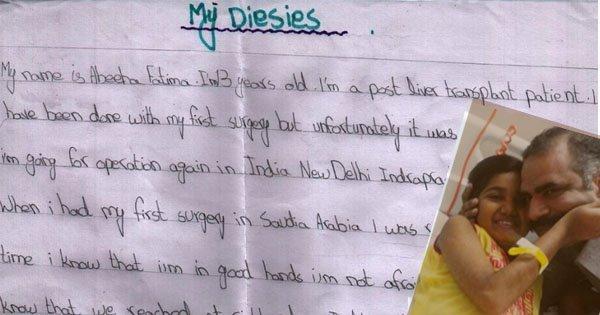 My Diesies .
My name is Abeeha Fatima. I'm 13 years old. I'm a post liver transplant patient. I
have been done with my first surgery but unfortunately it was
i'm going for operation again in India New Delhi Indrapra
When i had my first surgery in Saudia Arabia I was
time i know that i'm in good hands i'm not afrai
know that we reached